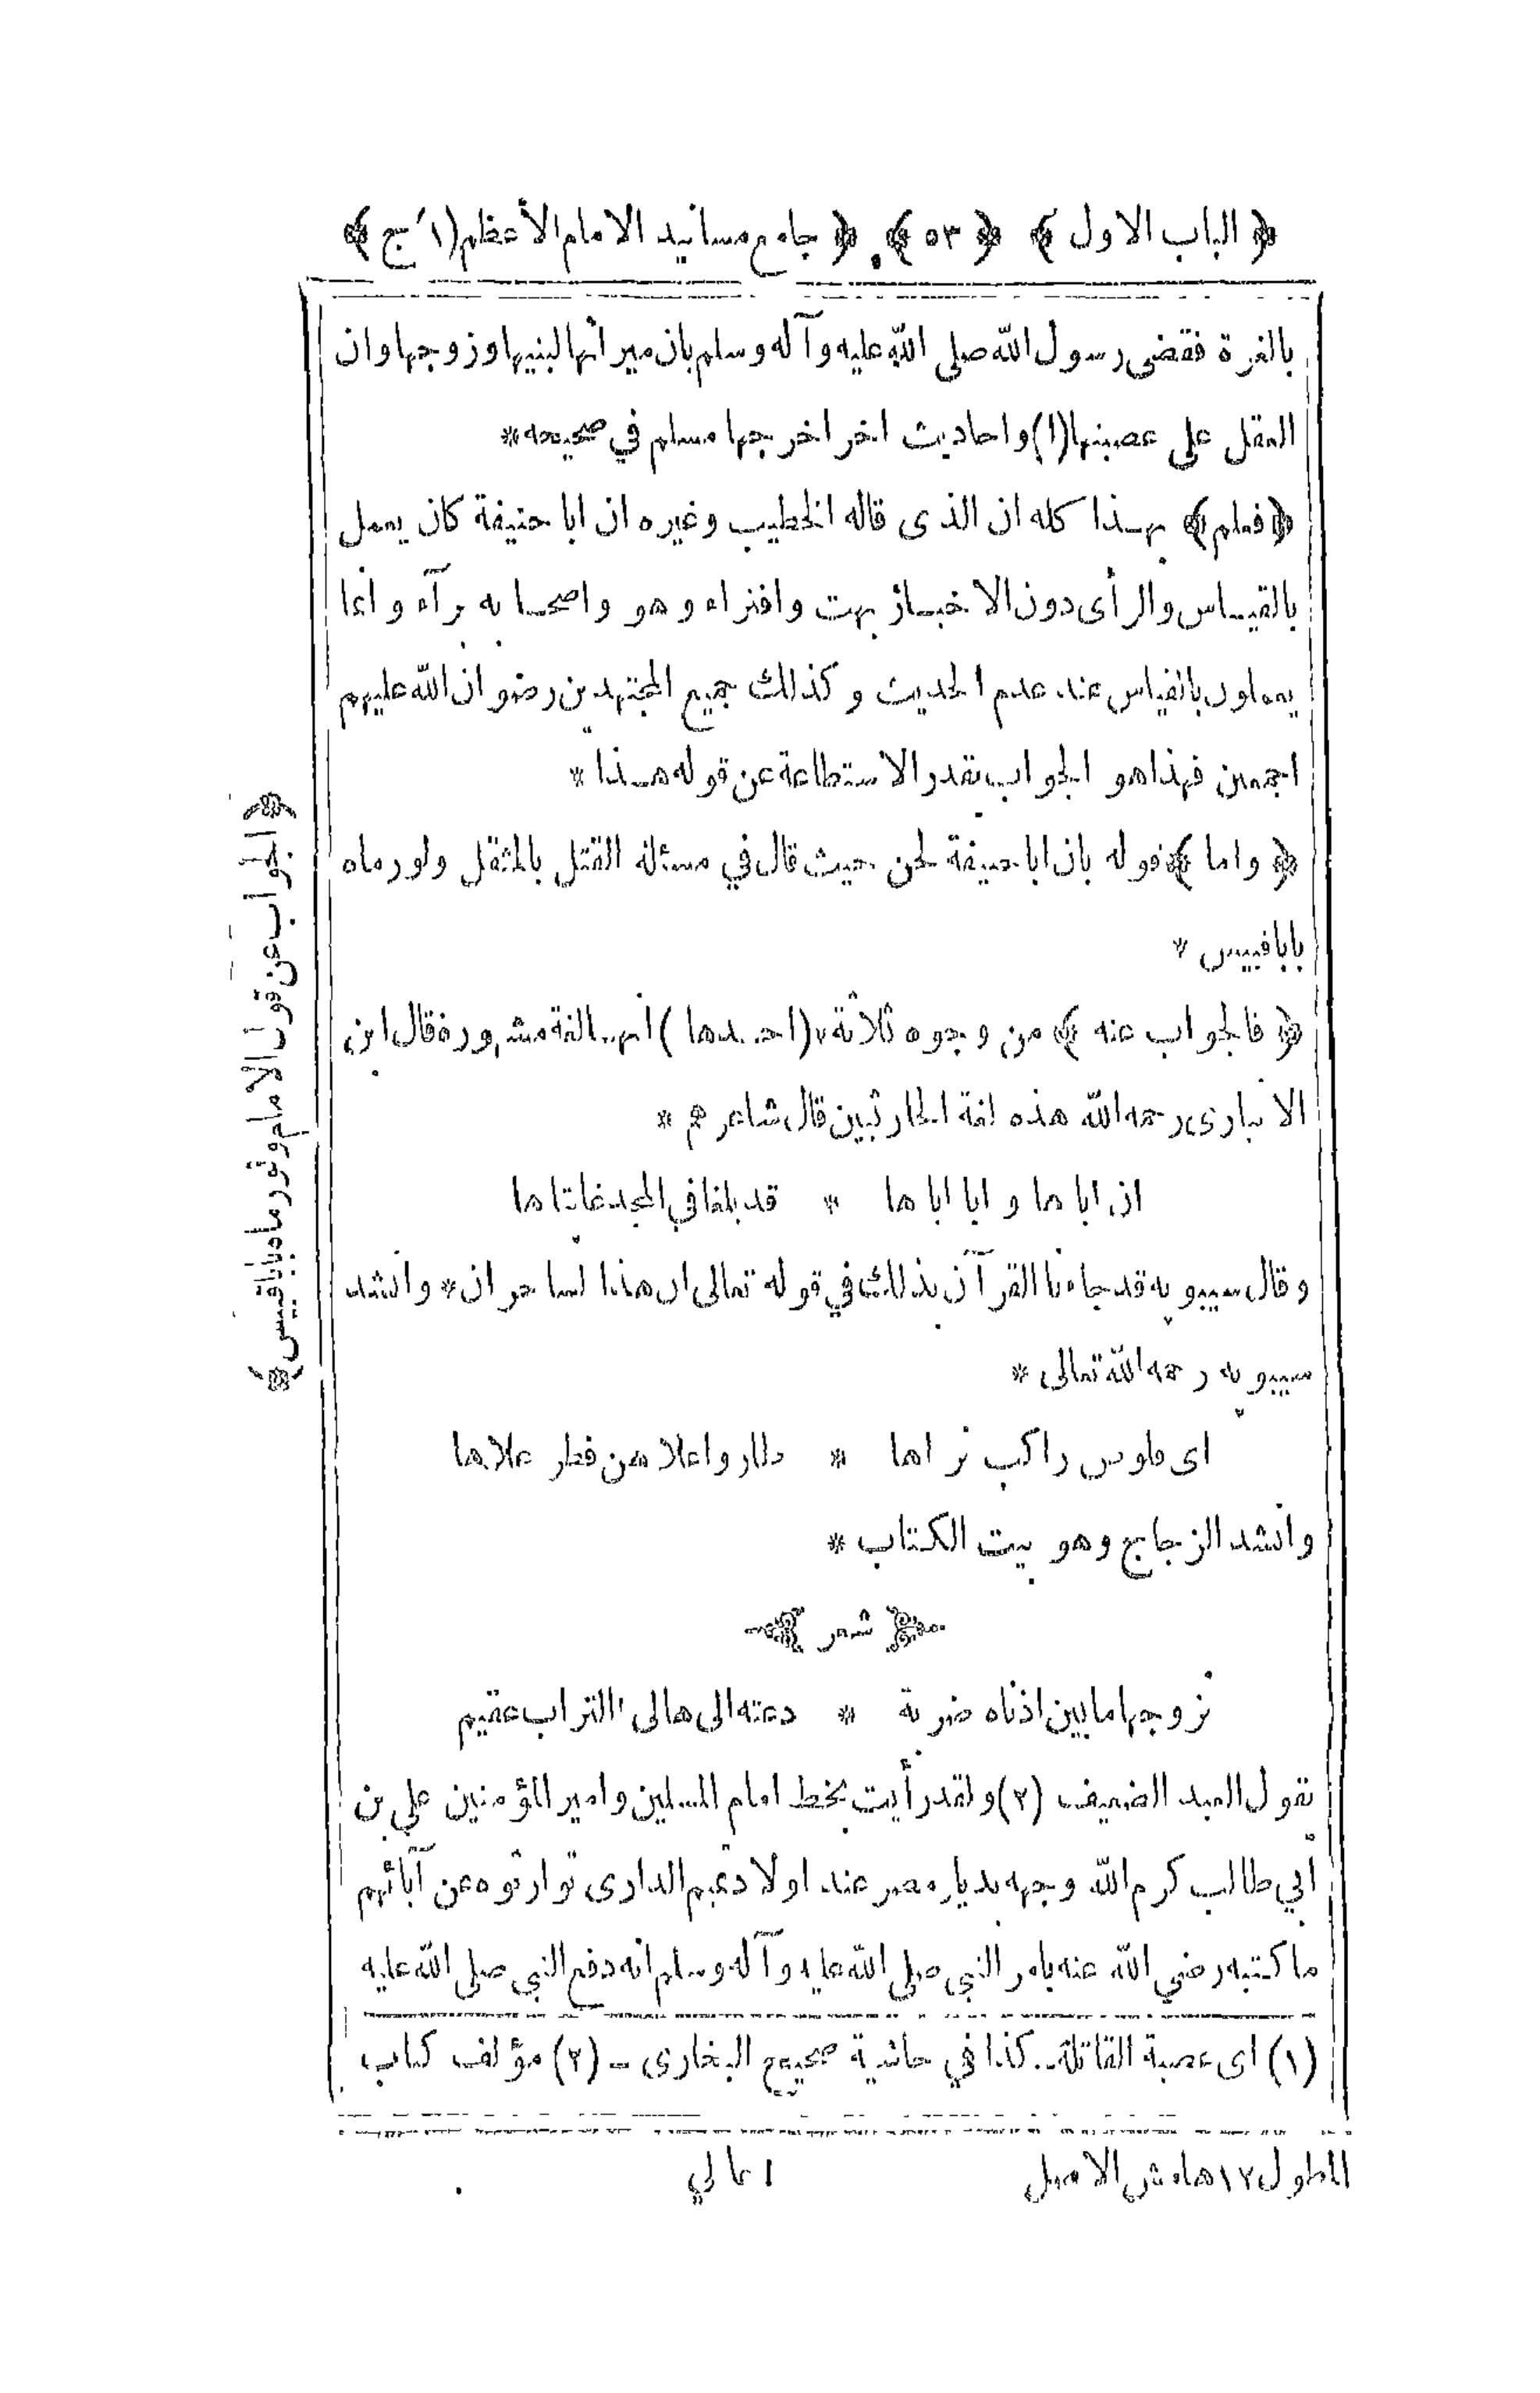 ﴿ الباب الاول ﴾ ﴿ ٥٣ ﴾ ﴿ جامع مسانيد الامام الأعظم (١ ج ﴾
بالغرة فقضى رسول الله صلى الله عليه وآله وسلم بان ميراثها لبنيها وزوجها وان
العقل على عصبتها (١) واحاديث اخر اخرجها مسلم في صحيحه *
﴿ فعلم ﴾ بهذا كله ان الذى قاله الخطيب وغيره ان ابا حنيفة كان يعمل
بالقياس والرأى دون الاخبار بهت وافتراء وهو واصحابه برآء وانما
يعملون بالقياس عند عدم الحديث وكذلك جميع المجتهدين رضوان الله عليهم
اجمعين فهذا هو الجواب بقدر الاستطاعة عن قوله هذا *
﴿ واما ﴾ قوله بان ابا حنيفة لحن حيث قال في مسئلة القتل بالمثقل ولو رماه
بابا قبيس *
﴿ فالجواب عنه ﴾ من وجوه ثلاثة (احدها) انها لغة مشهورة قال ابن
الانبارى رحمه الله هذه لغة الحارثيين قال شاعرهم *
ان اباها وابا اباها * قد بلغا في المجد غايتاها
وقال سيبويه قد جاءنا القرآن بذلك في قوله تعالى ان هذان لساحران * وانشد
سيبويه رحمه الله تعالى *
اى قلوص راكب تراها * طاروا علاهن فطر علاها
وانشد الزجاج وهو بيت الكتاب *
شعر
تزوجها ما بين اذناه ضربة * دعته الى هالى التراب عقيم
يقول العبد الضعيف (٢) ولقد رأيت بخط امام المسلمين وامير المؤمنين علي بن
أبي طالب كرم الله وجهه بديار مصر عند اولاد تميم الدارى توارثوه عن آبائهم
ما كتبه رضي الله عنه بامر النبي صلى الله عليه وآله وسلم انه دفع النبي صلى الله عليه
(١) اى عصبة القاتلة. كذا في حاشية صحيح البخارى - (٢) مؤلف كتاب
المطول ١٢ هامش الاصل
﴿ الجواب عن قول الامام ولو رماه بابا قبيس ﴾